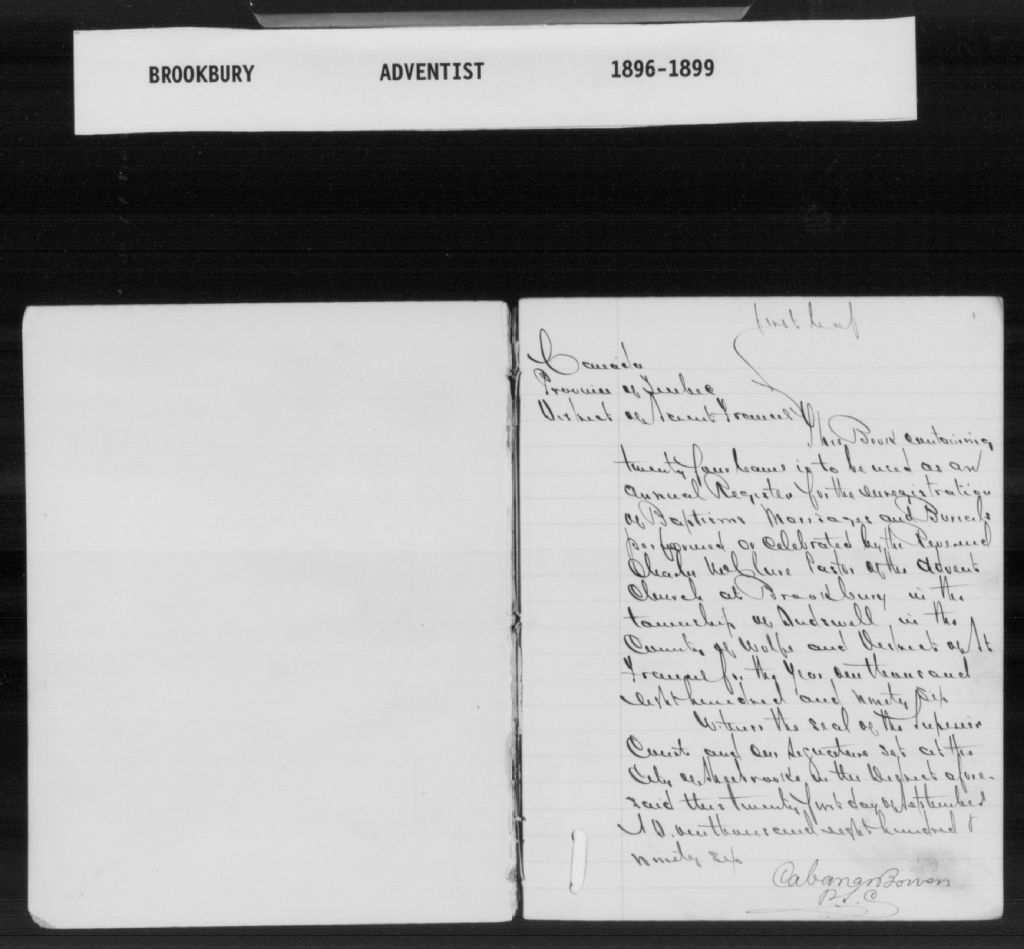 BROOKBURY ADVENTIST 1896-1899
first leaf
Canada
Province of Quebec
District of Saint Francis
This Book containing
twenty four leaves is to be used as an
annual Register for the enregistration
of Baptisms Marriages and Burials
performed or celebrated by the Reverend
Charles McClure Pastor of the Advent
Church at Brookbury in the
township of Dudswell in the
County of Wolfe and District of St
Francis for the Year one thousand
eight hundred and ninety six
Witness the seal of the Superior
Court and our signature set at the
City of Sherbrooke in the District afore-
said this twenty first day of September
A D. one thousand eight hundred &
ninety six
Cabana &amp; Bowen
P.S.C